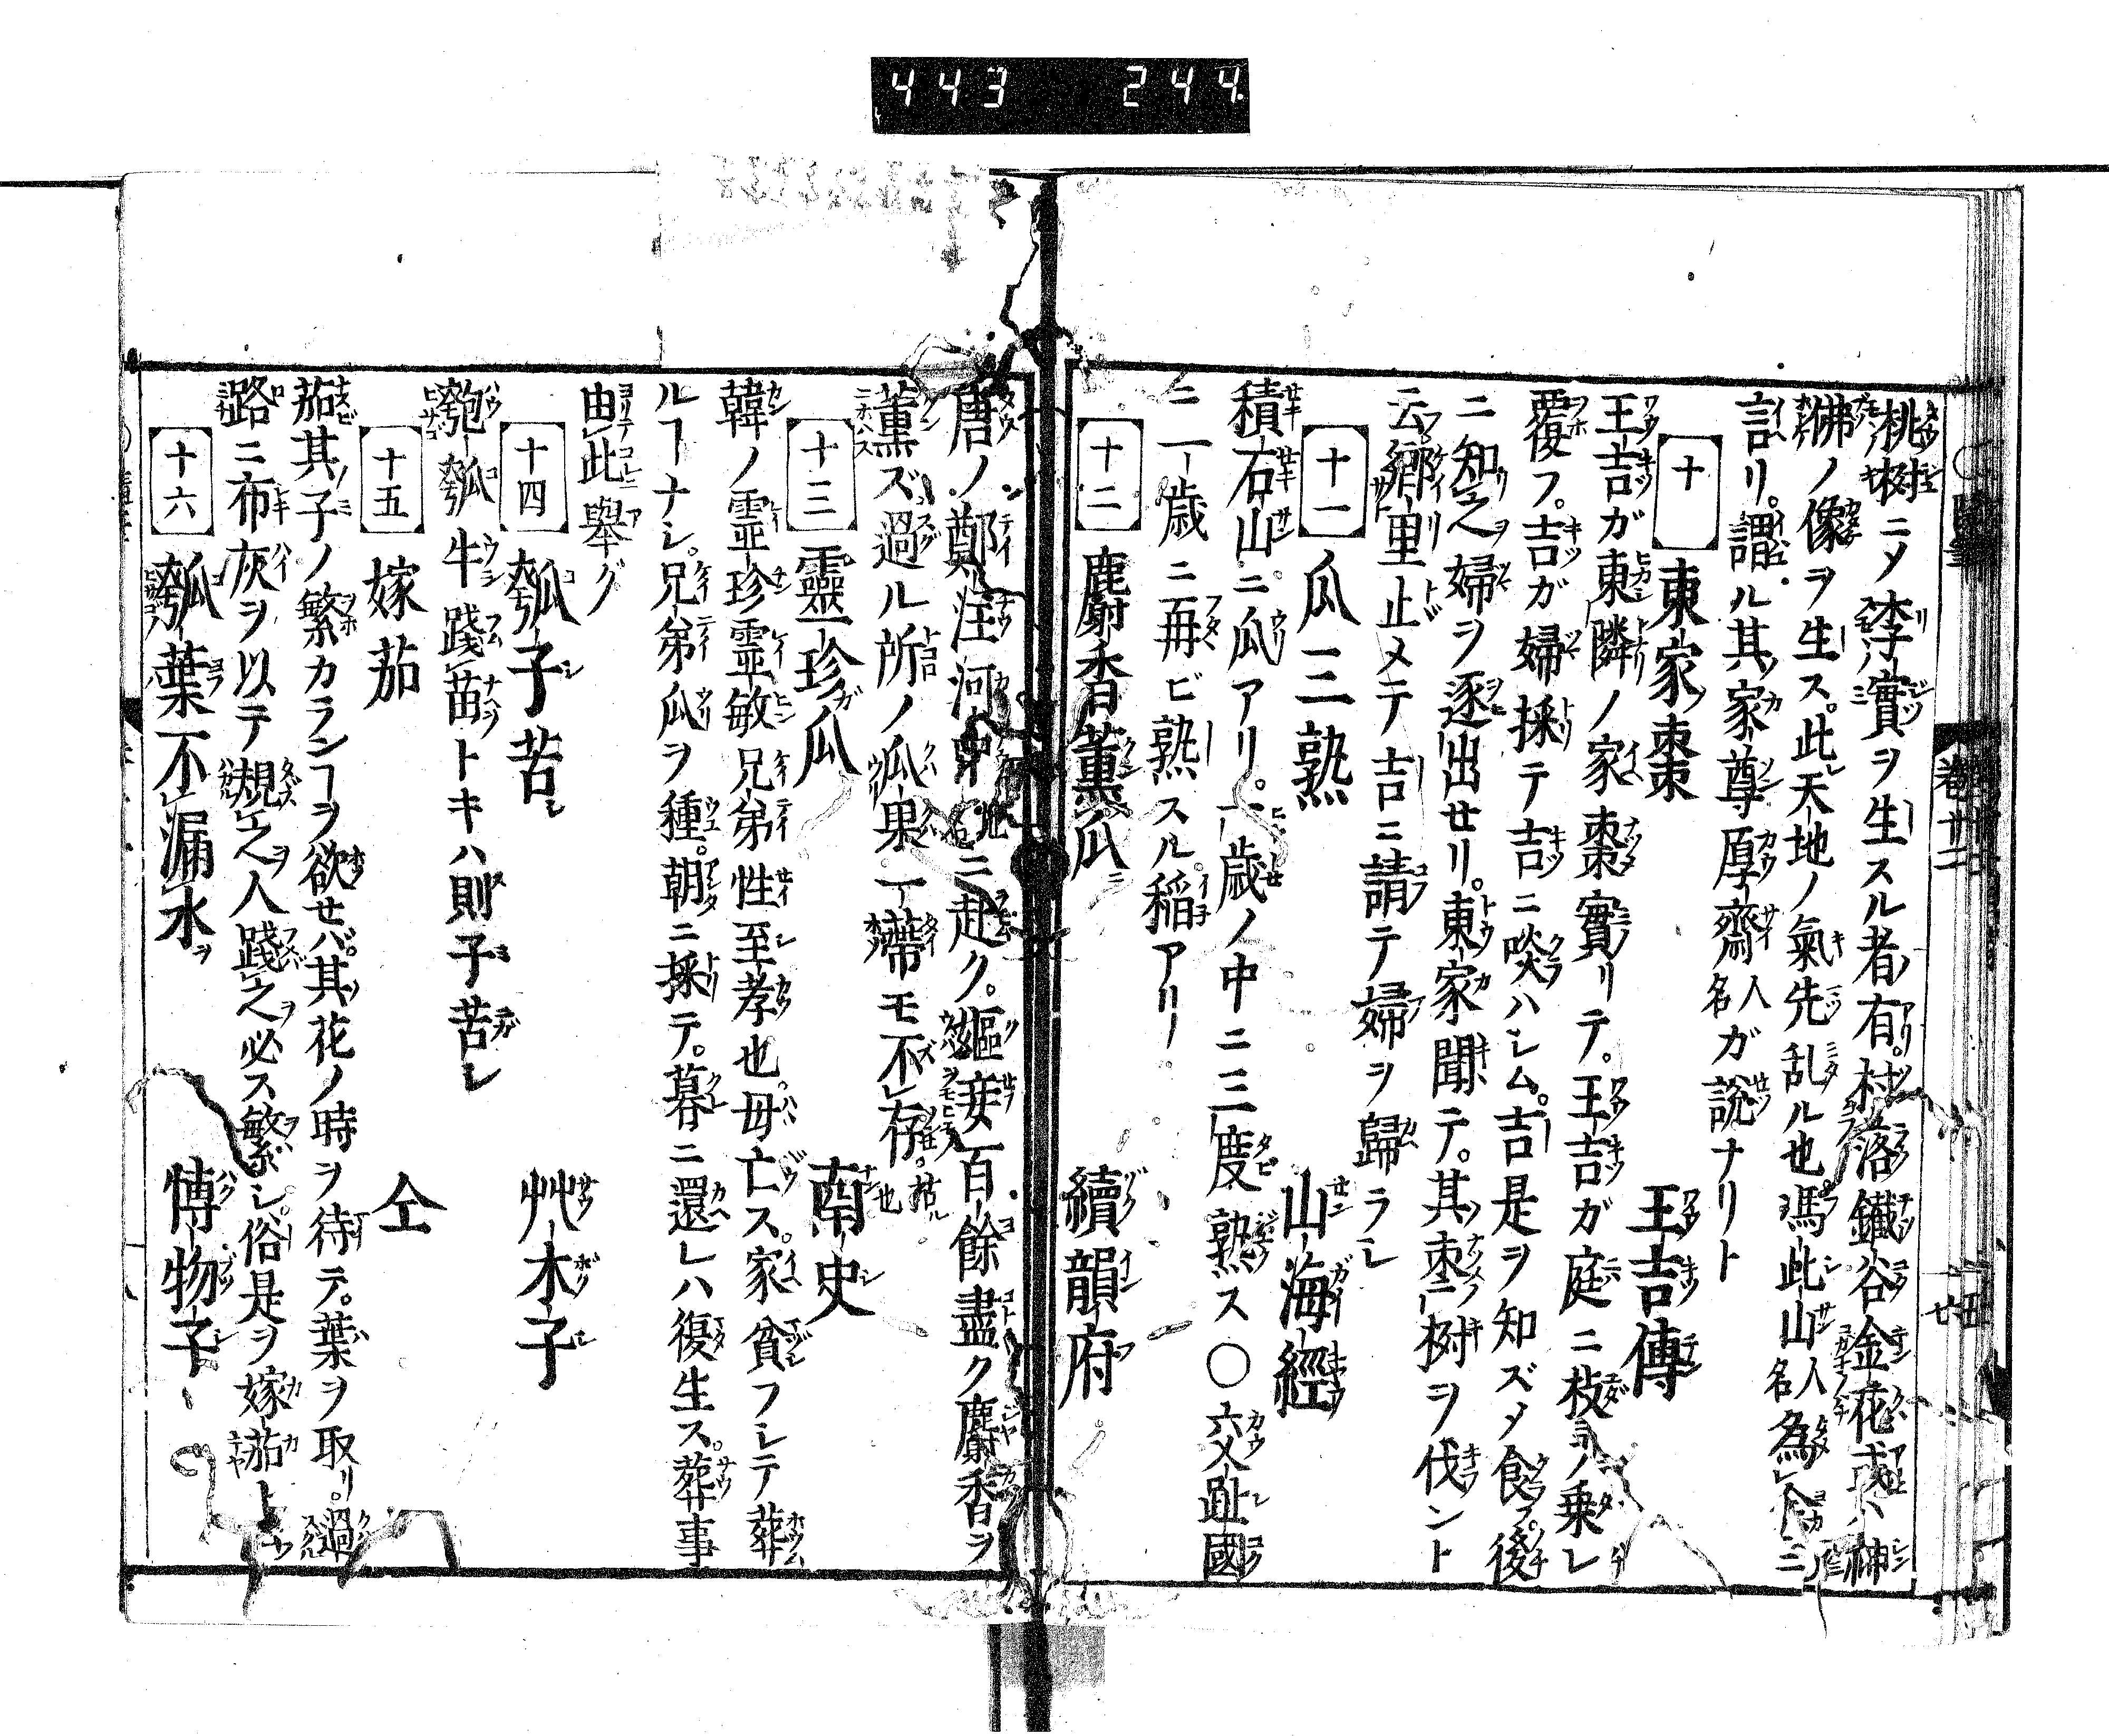 443 244
桃樹ニ〆李實ヲ生スル者有。村落鐵谷金花或ハ神
佛ノ像ヲ生ス。此天地ノ氣先乱ル也馮此山人名為
言リ。謂ル其家尊厚齋人名ガ説ナリト
十 東家棗 王吉傳
王吉ガ東隣ノ家棗實リテ。王吉ガ庭ニ枝乗レ
覆フ。吉ガ婦採テ吉ニ啖ハシム。吉是ヲ知ズ〆食フ。後
ニ知之婦ヲ逐出セリ。東家聞テ。其棗樹ヲ伐ント
云。郷里止メテ吉ニ請テ婦ヲ歸ラシ
十一 瓜三熟 山海經
積石山ニ瓜アリ。一歳ノ中ニ三度熟ス〇交趾國
ニ一歳ニ再ビ熟スル。稲アリ
十二 麝香薫瓜 續韻府
唐ノ鄭注河中地名ニ赴ク。嫗妾百餘盡ク麝香ヲ
薫ズ。過ル所ノ瓜果一蔕モ不存。枯ル也
十三 靈珍瓜 南史
韓ノ霊珍霊敏兄弟性至孝也。母亡ス。家貧フシテ葬
ルヿナシ。兄弟瓜ヲ種。朝ニ採テ。暮ニ還レハ復生ス。葬事
由此舉グ
十四 瓠子苦シ 艸木子
匏瓠牛踐苗トキハ則子苦シ
十五 嫁茄 仝
茄其子ノ繁カランヿヲ欲セバ。其花ノ時ヲ待テ。葉ヲ取リ。過
路ニ布灰ヲ以テ規之人踐之必ス繁シ。俗是ヲ嫁茄ト
十六 瓠葉不漏水ヲ 博物子